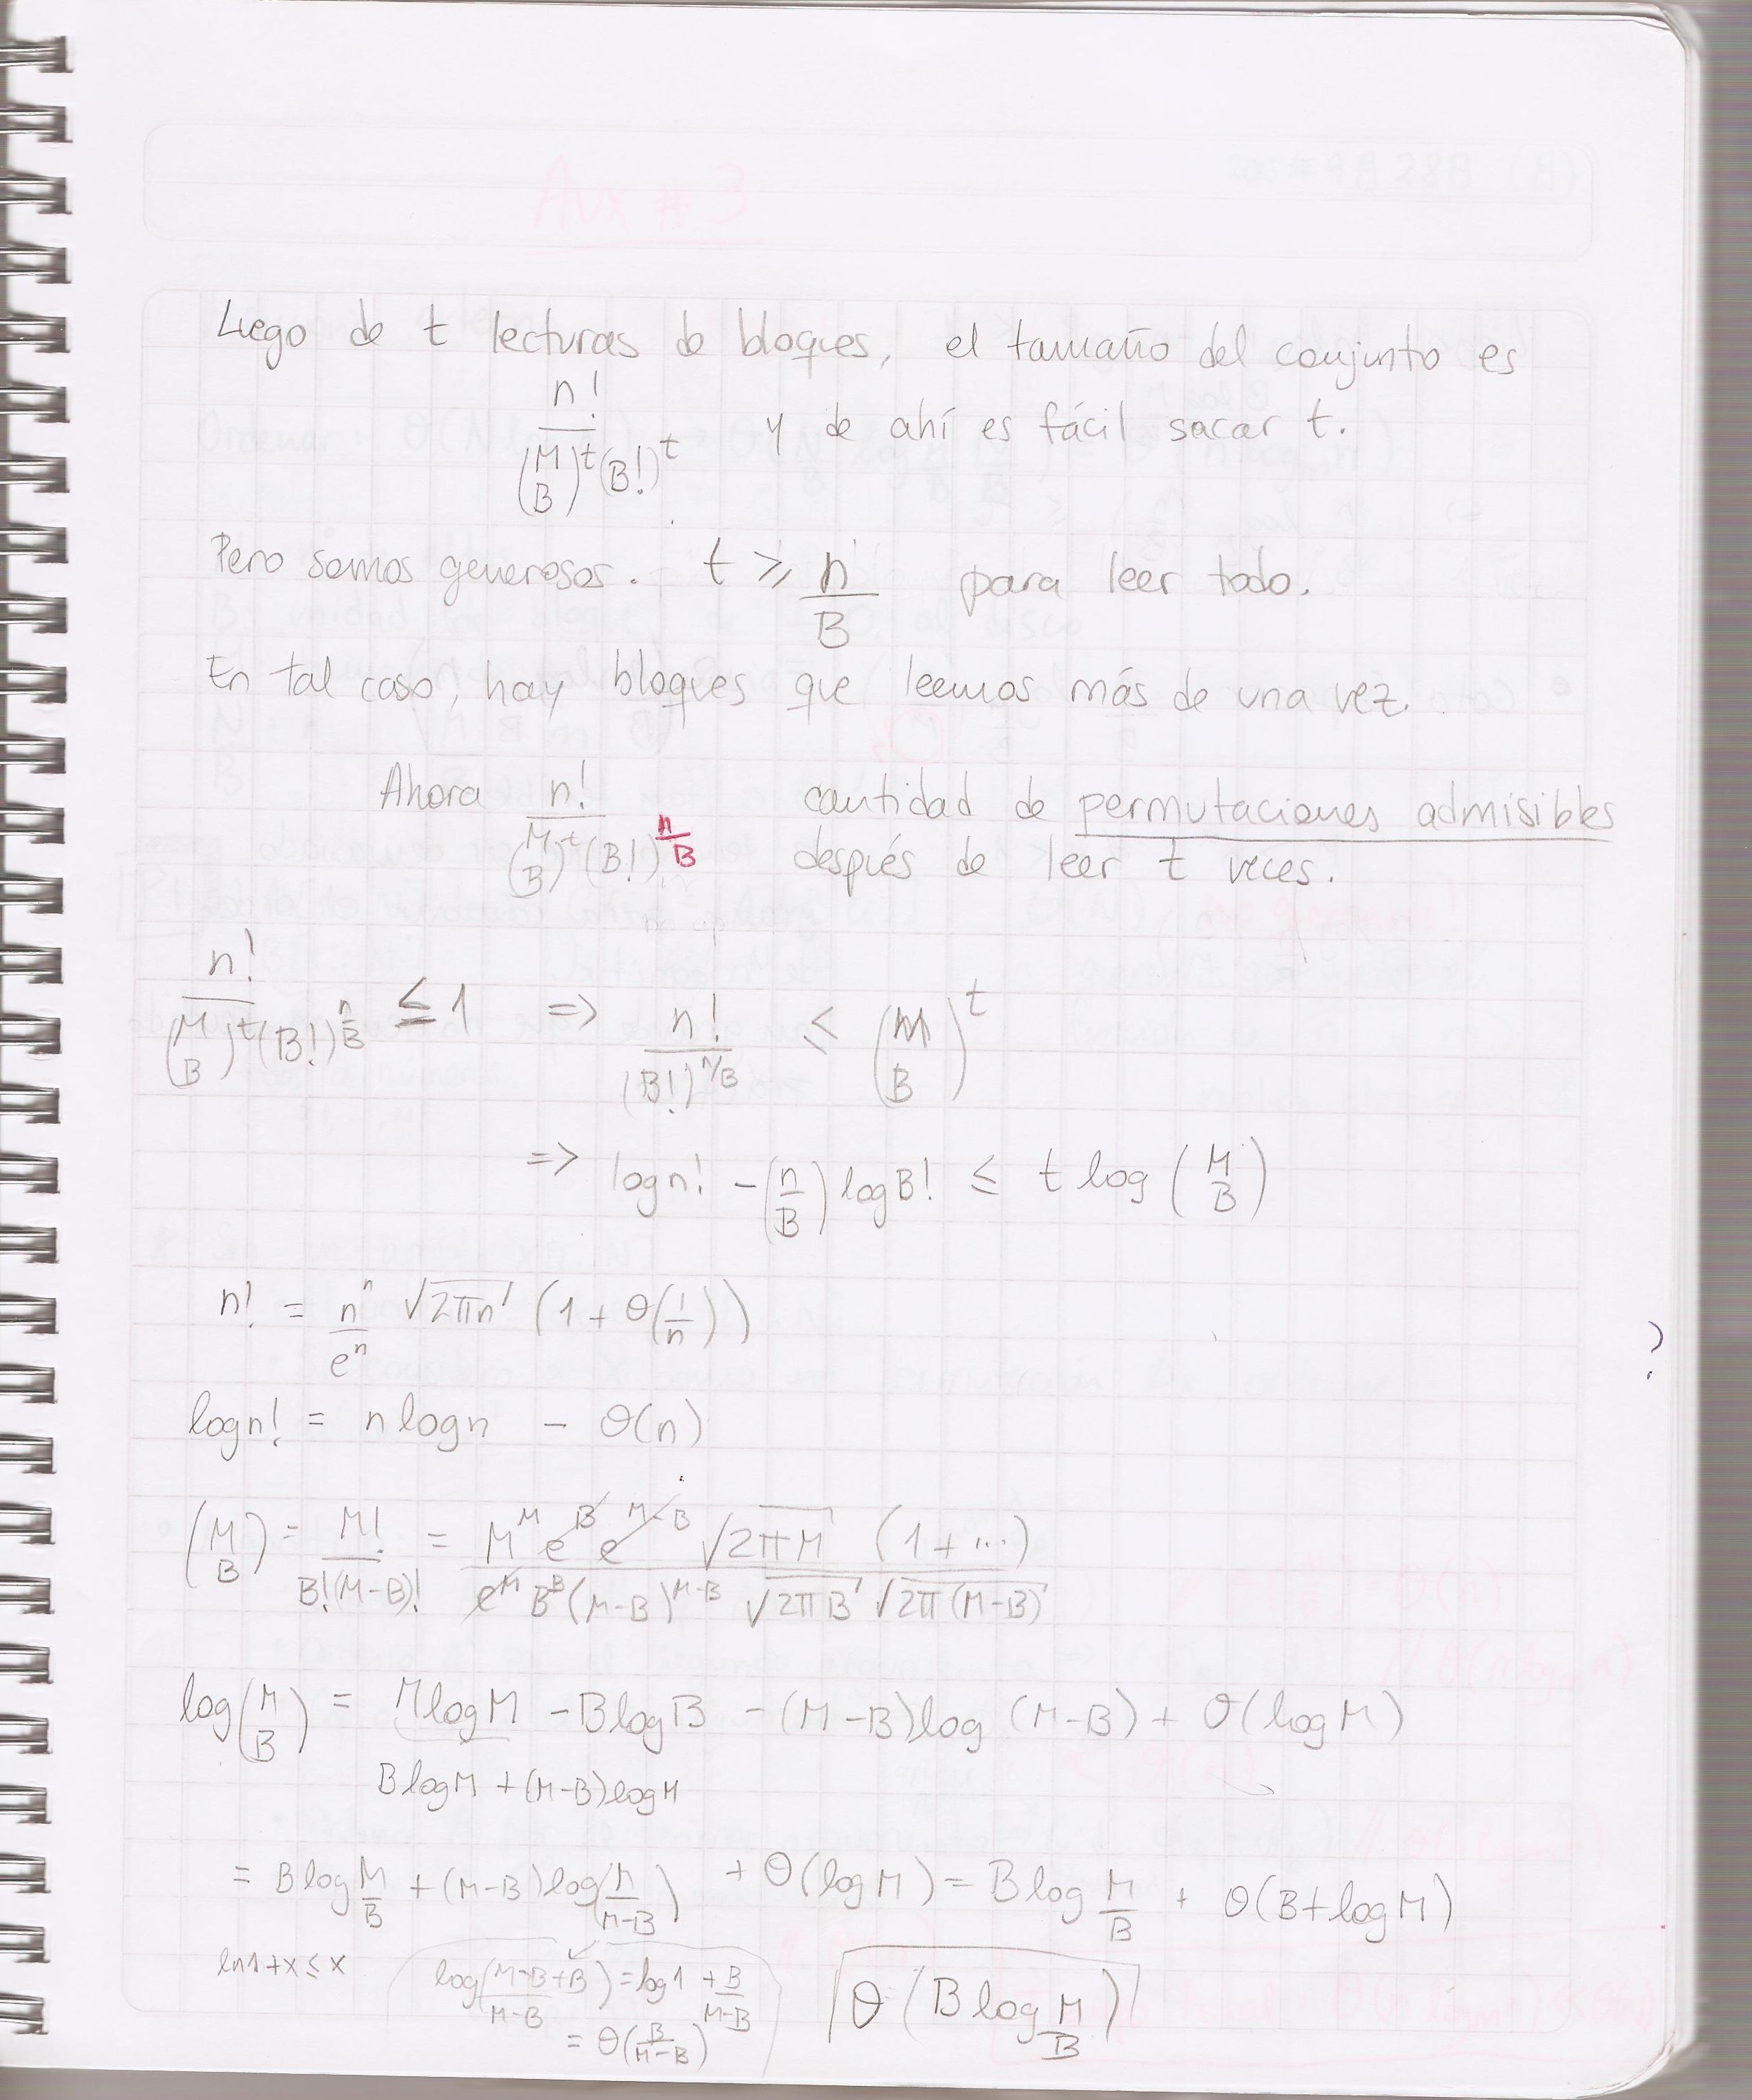 Luego de t lecturas de bloques, el tamaño del conjunto es
n! / (M B)^t (B!)^t y de ahí es fácil sacar t.
Pero somos generosos. t ⩾ n/B para leer todo.
En tal caso, hay bloques que leemos más de una vez.
Ahora n! / (M B)^t (B!)^(n/B) cantidad de permutaciones admisibles
después de leer t veces.
n! / (M B)^t (B!)^(n/B) ≤ 1 => n! / (B!)^(n/B) ≤ (M B)^t
=> log n! - (n/B) log B! ≤ t log (M B)
n! = n^n / e^n √2πn (1 + O(1/n))
?
log n! = n log n - O(n)
(M B) = M! / B!(M-B)! = M^M e^B e^(M-B) √2πM (1 + ...) / e^M B^B (M-B)^(M-B) √2πB √2π(M-B)
log (M B) = M log M - B log B - (M-B) log (M-B) + O(log M)
B log M + (M-B) log M
= B log M/B + (M-B) log (M/(M-B)) + O(log M) = B log M/B + O(B + log M)
ln 1+x ≤ x
log ((M-B+B)/(M-B)) = log 1 + B/(M-B)
= O(B/(M-B))
θ(B log M/B)